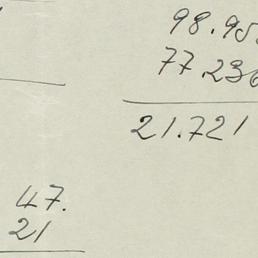 98.95
77.236
21.721
47.
21